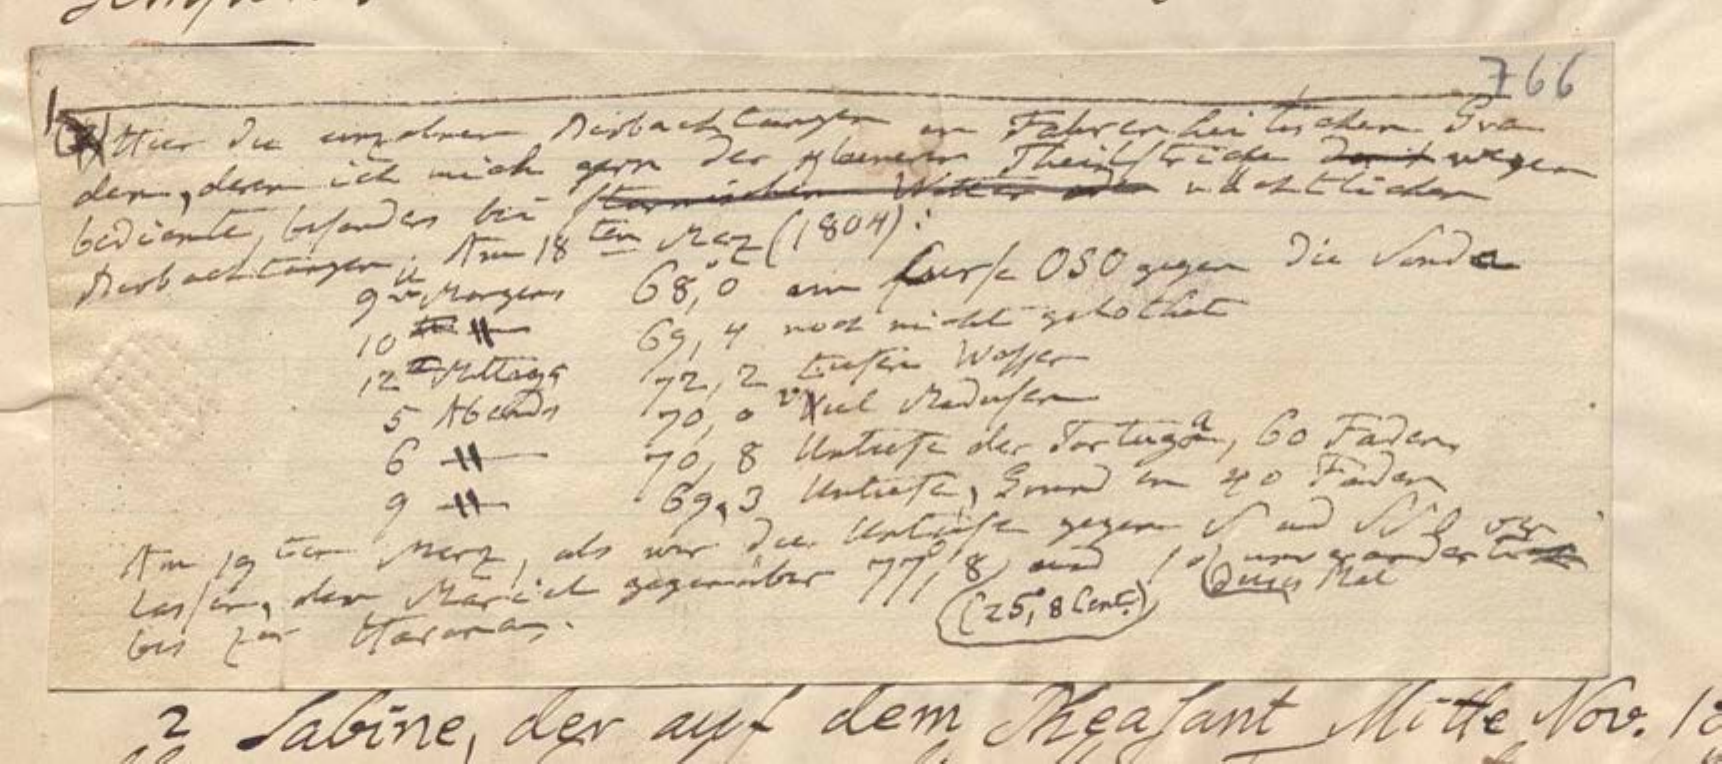 766
1 Hier die einzelnen Beobachtungen in Fahrenheitischen Gra
den, deren ich mich gern der kleineren Theilstriche wegen
bediente, besonders bei stürmischem Wetter oder nächtlichen
Beobachtungen. Am 18ten Merz (1804):
9u Morgens 68,°0 am Curse OSO gegen die Sonda
10 " 69,4 noch nicht gelothet
12 Mittags 72,2 tiefen Wasser
5 Abends 70,0 viel Medusen
6 " 70,8 Untiefe der Tortuga, 60 Faden
9 " 69,3 Untiefe, Grund in 40 Faden
Am 19ten Merz, als wir die Untiefe gegen S und ver
lassen, dem gegenüber 77°,8 und so unverändert
(25°,8 Cent.) dieses Mal
bis zur Havana.
2 Sabine, der auf dem Pheasant Mitte Nov. 18